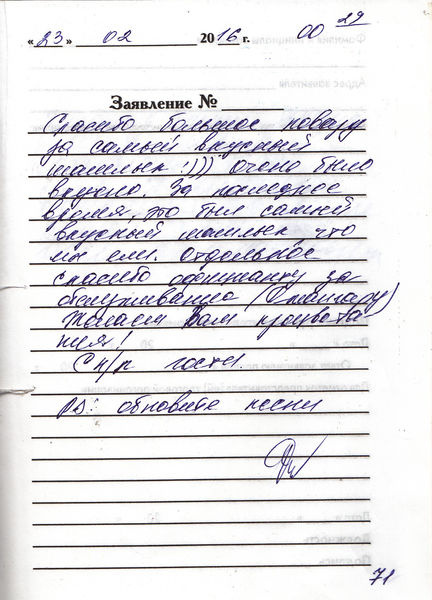 «23» 02 2016 г. 00 29
Заявление №
Спасибо большое повару
за самый вкусный
шашлык :))) очень было
вкусно. За последнее
время, это был самый
вкусный шашлык, что
мы ели. Отдельное
спасибо официанту за
обслуживание
Желаем Вам процвета
ния!
С п/п гости.
PS: обновите песни
71